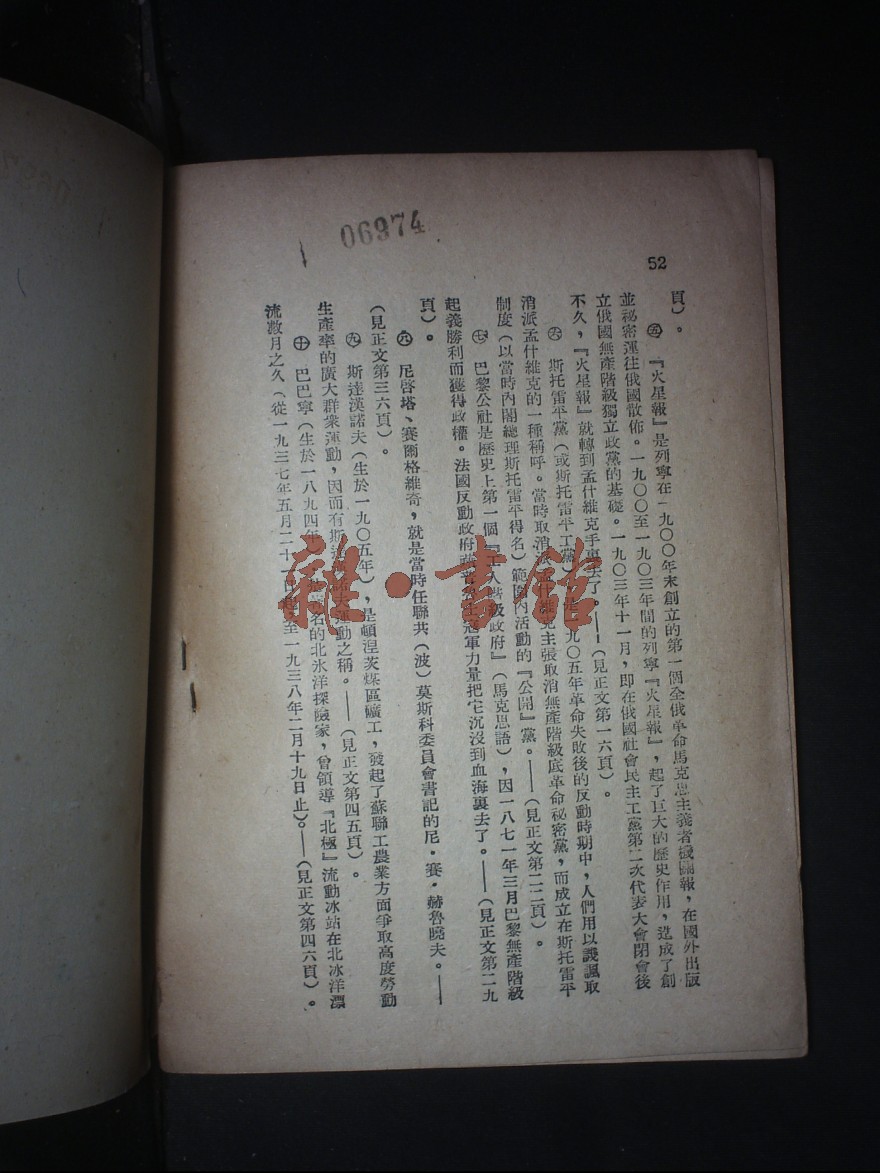 06974
52
頁)。
㊄ 『火星報』是列寧在一九〇〇年末創立的第一個全俄革命馬克思主義者機關報,在國外出版
並祕密運往俄國散佈。一九〇〇至一九〇三年間的列寧『火星報』,起了巨大的歷史作用,造成了創
立俄國無產階級獨立政黨的基礎。一九〇三年十一月,即在俄國社會民主工黨第二次代表大會閉會後
不久,『火星報』就轉到孟什維克手裏去了。——(見正文第一六頁)。
㊅ 斯托雷平黨(或斯托雷平工黨)是一九〇五年革命失敗後的反動時期中,人們用以譏諷取
消派孟什維克的一種稱呼。當時取消派孟什維克主張取消無產階級底革命祕密黨,而成立在斯托雷平
制度(以當時內閣總理斯托雷平得名)範圍內活動的『公開』黨。——(見正文第二二頁)。
㊆ 巴黎公社是歷史上第一個『工人階級政府』(馬克思語),因一八七一年三月巴黎無產階級
起義勝利而獲得政權。法國反動政府 軍力量把它沉沒到血海裏去了。——(見正文第二九
頁)。
㊇ 尼啓塔、賽爾格維奇,就是當時任聯共(波)莫斯科委員會書記的尼·賽·赫魯曉夫。——
(見正文第三六頁)。
㊈ 斯達漢諾夫(生於一九〇五年),是頓涅茨煤區礦工,發起了蘇聯工農業方面爭取高度勞動
生產率的廣大群衆運動,因而有斯達漢諾夫運動之稱。——(見正文第四五頁)。
㊉ 巴巴寧(生於一八九四年) 名的北氷洋探險家,曾領導『北極』流動冰站在北冰洋漂
流數月之久(從一九三七年五月二十一日起至一九三八年二月十九日止)。——(見正文第四六頁)。
雜·書館